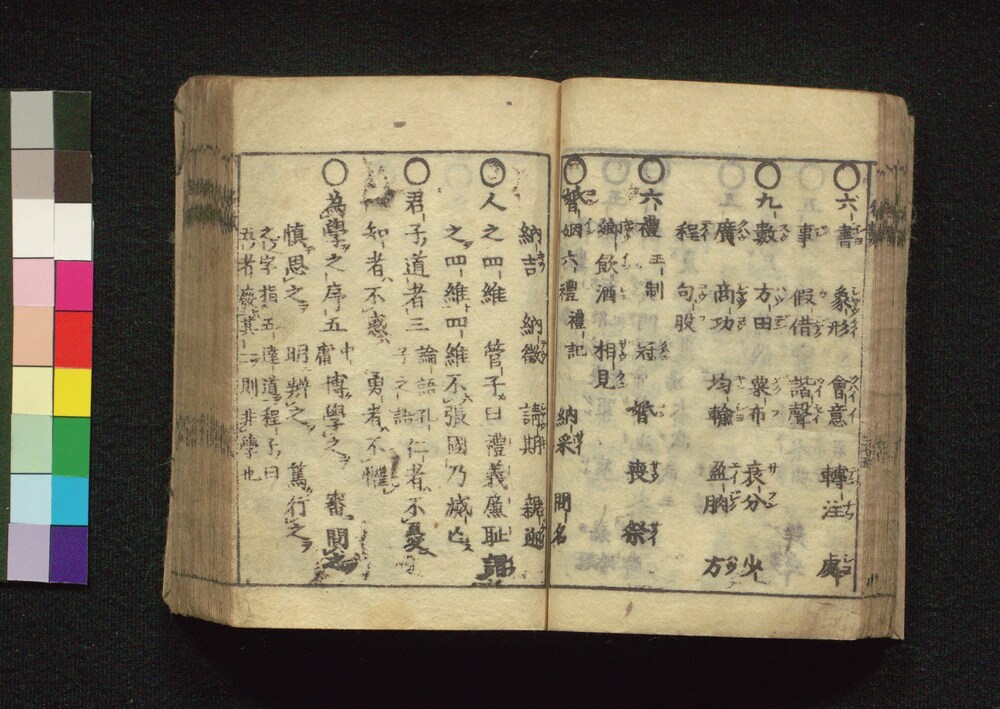 ○六書 象形 會意 轉注 處
事 假借 諧聲
○九數 方田 粟布 衰分 少
廣 商功 均輸 盈朒 方
程 句股
○六禮 王制 冠 婚 喪 祭
鄉飲酒 相見
○婚姻六禮 禮記 納采 問名
納吉 納徵 請期 親迎
○人之四維 管子曰禮義廉恥謂
之四維四維不張國乃滅亡
○君子道者三 論語孔子之語 仁者不憂
知者不惑 勇者不懼
○為學之序五 中庸 博學之 審問之
慎思之 明辨之 篤行之
之字指五達道程子曰
五者廢其一則非學也